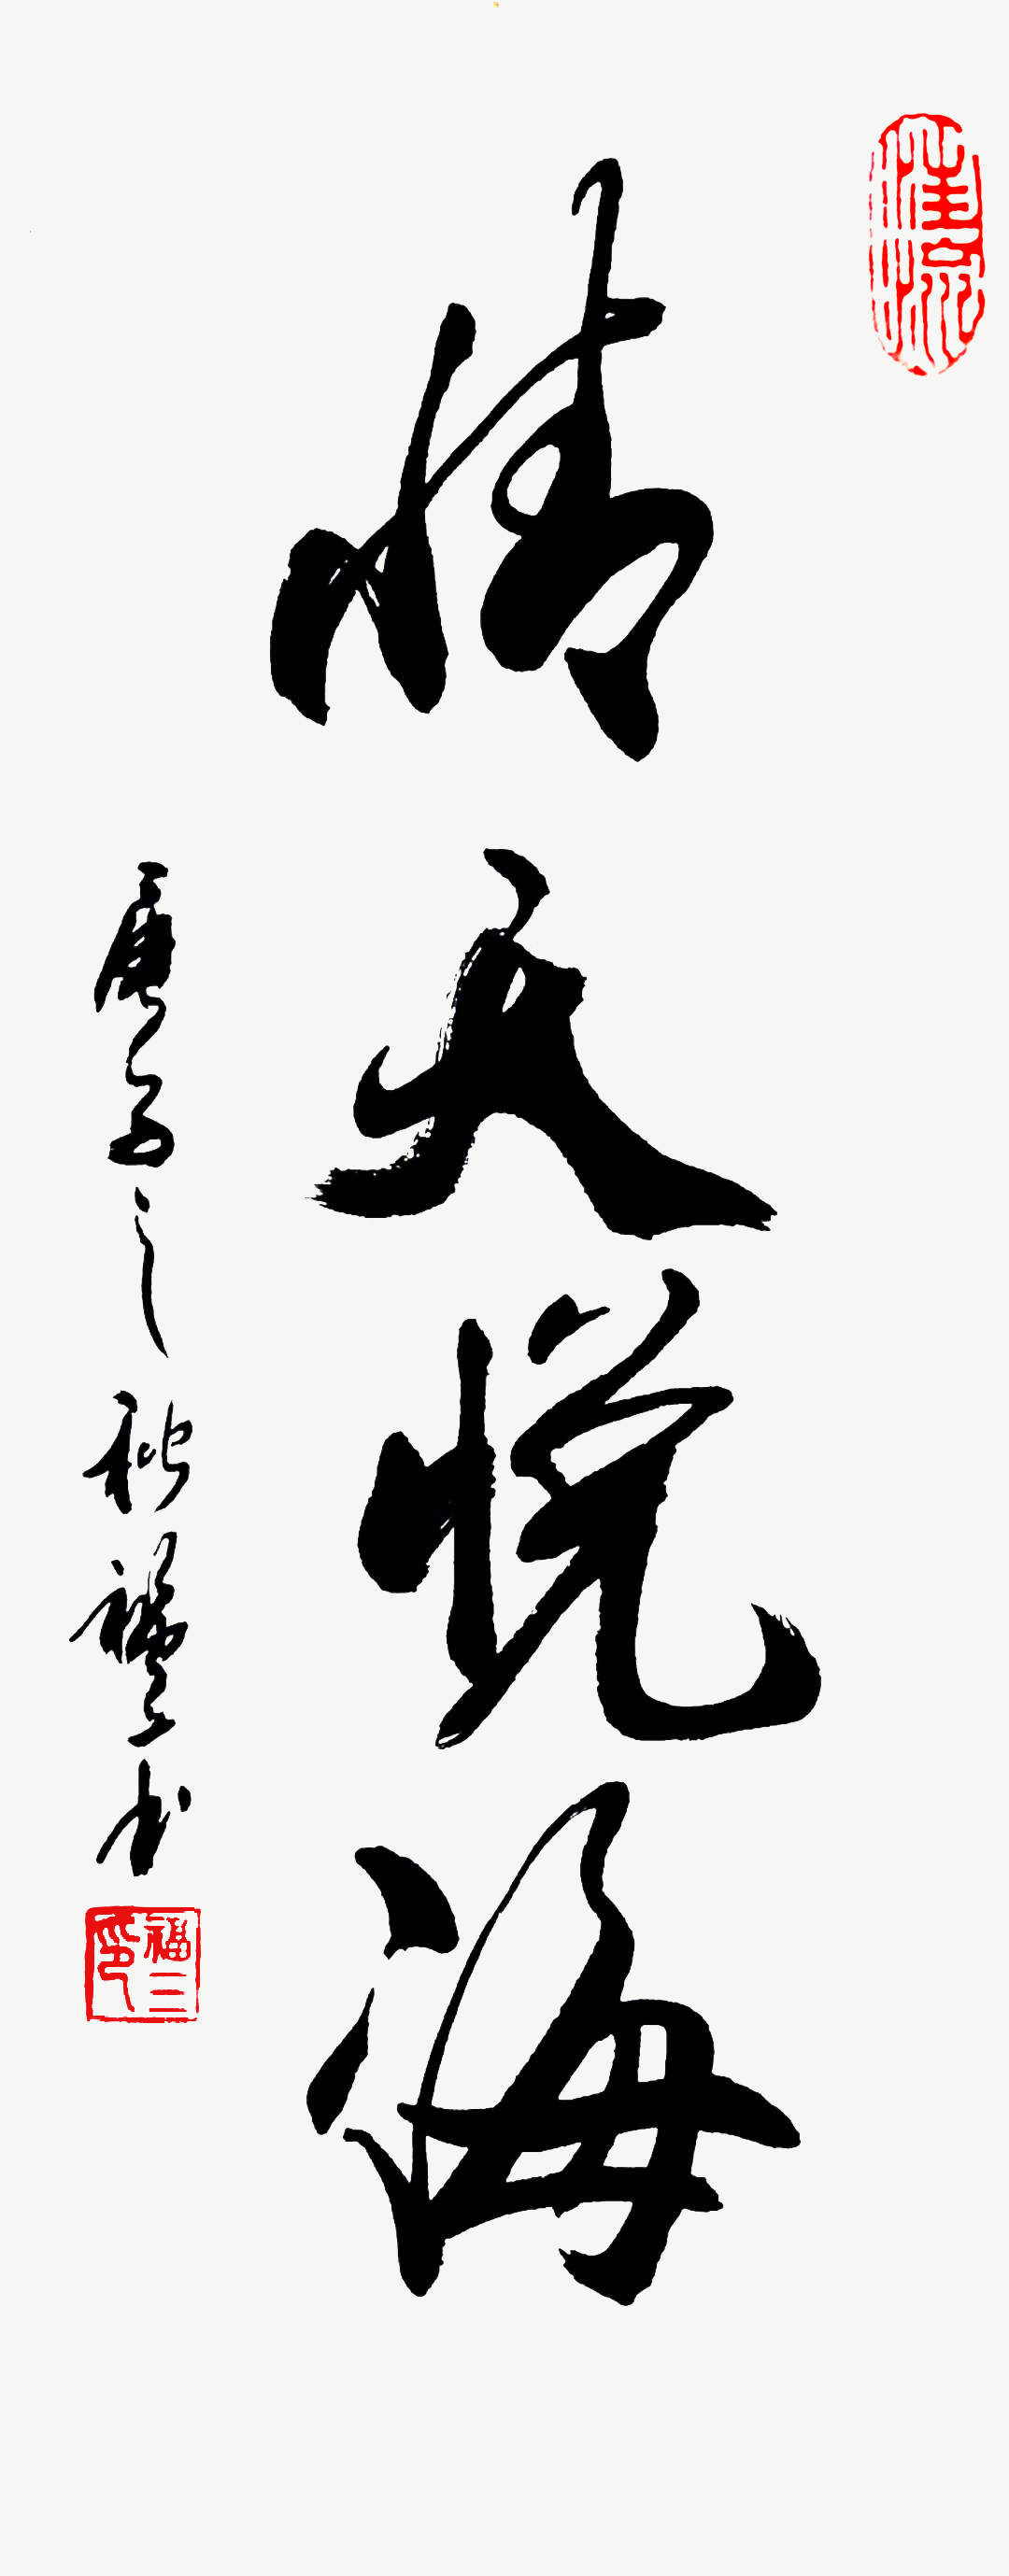 情天悦海
庚子之秋福三书
福三印